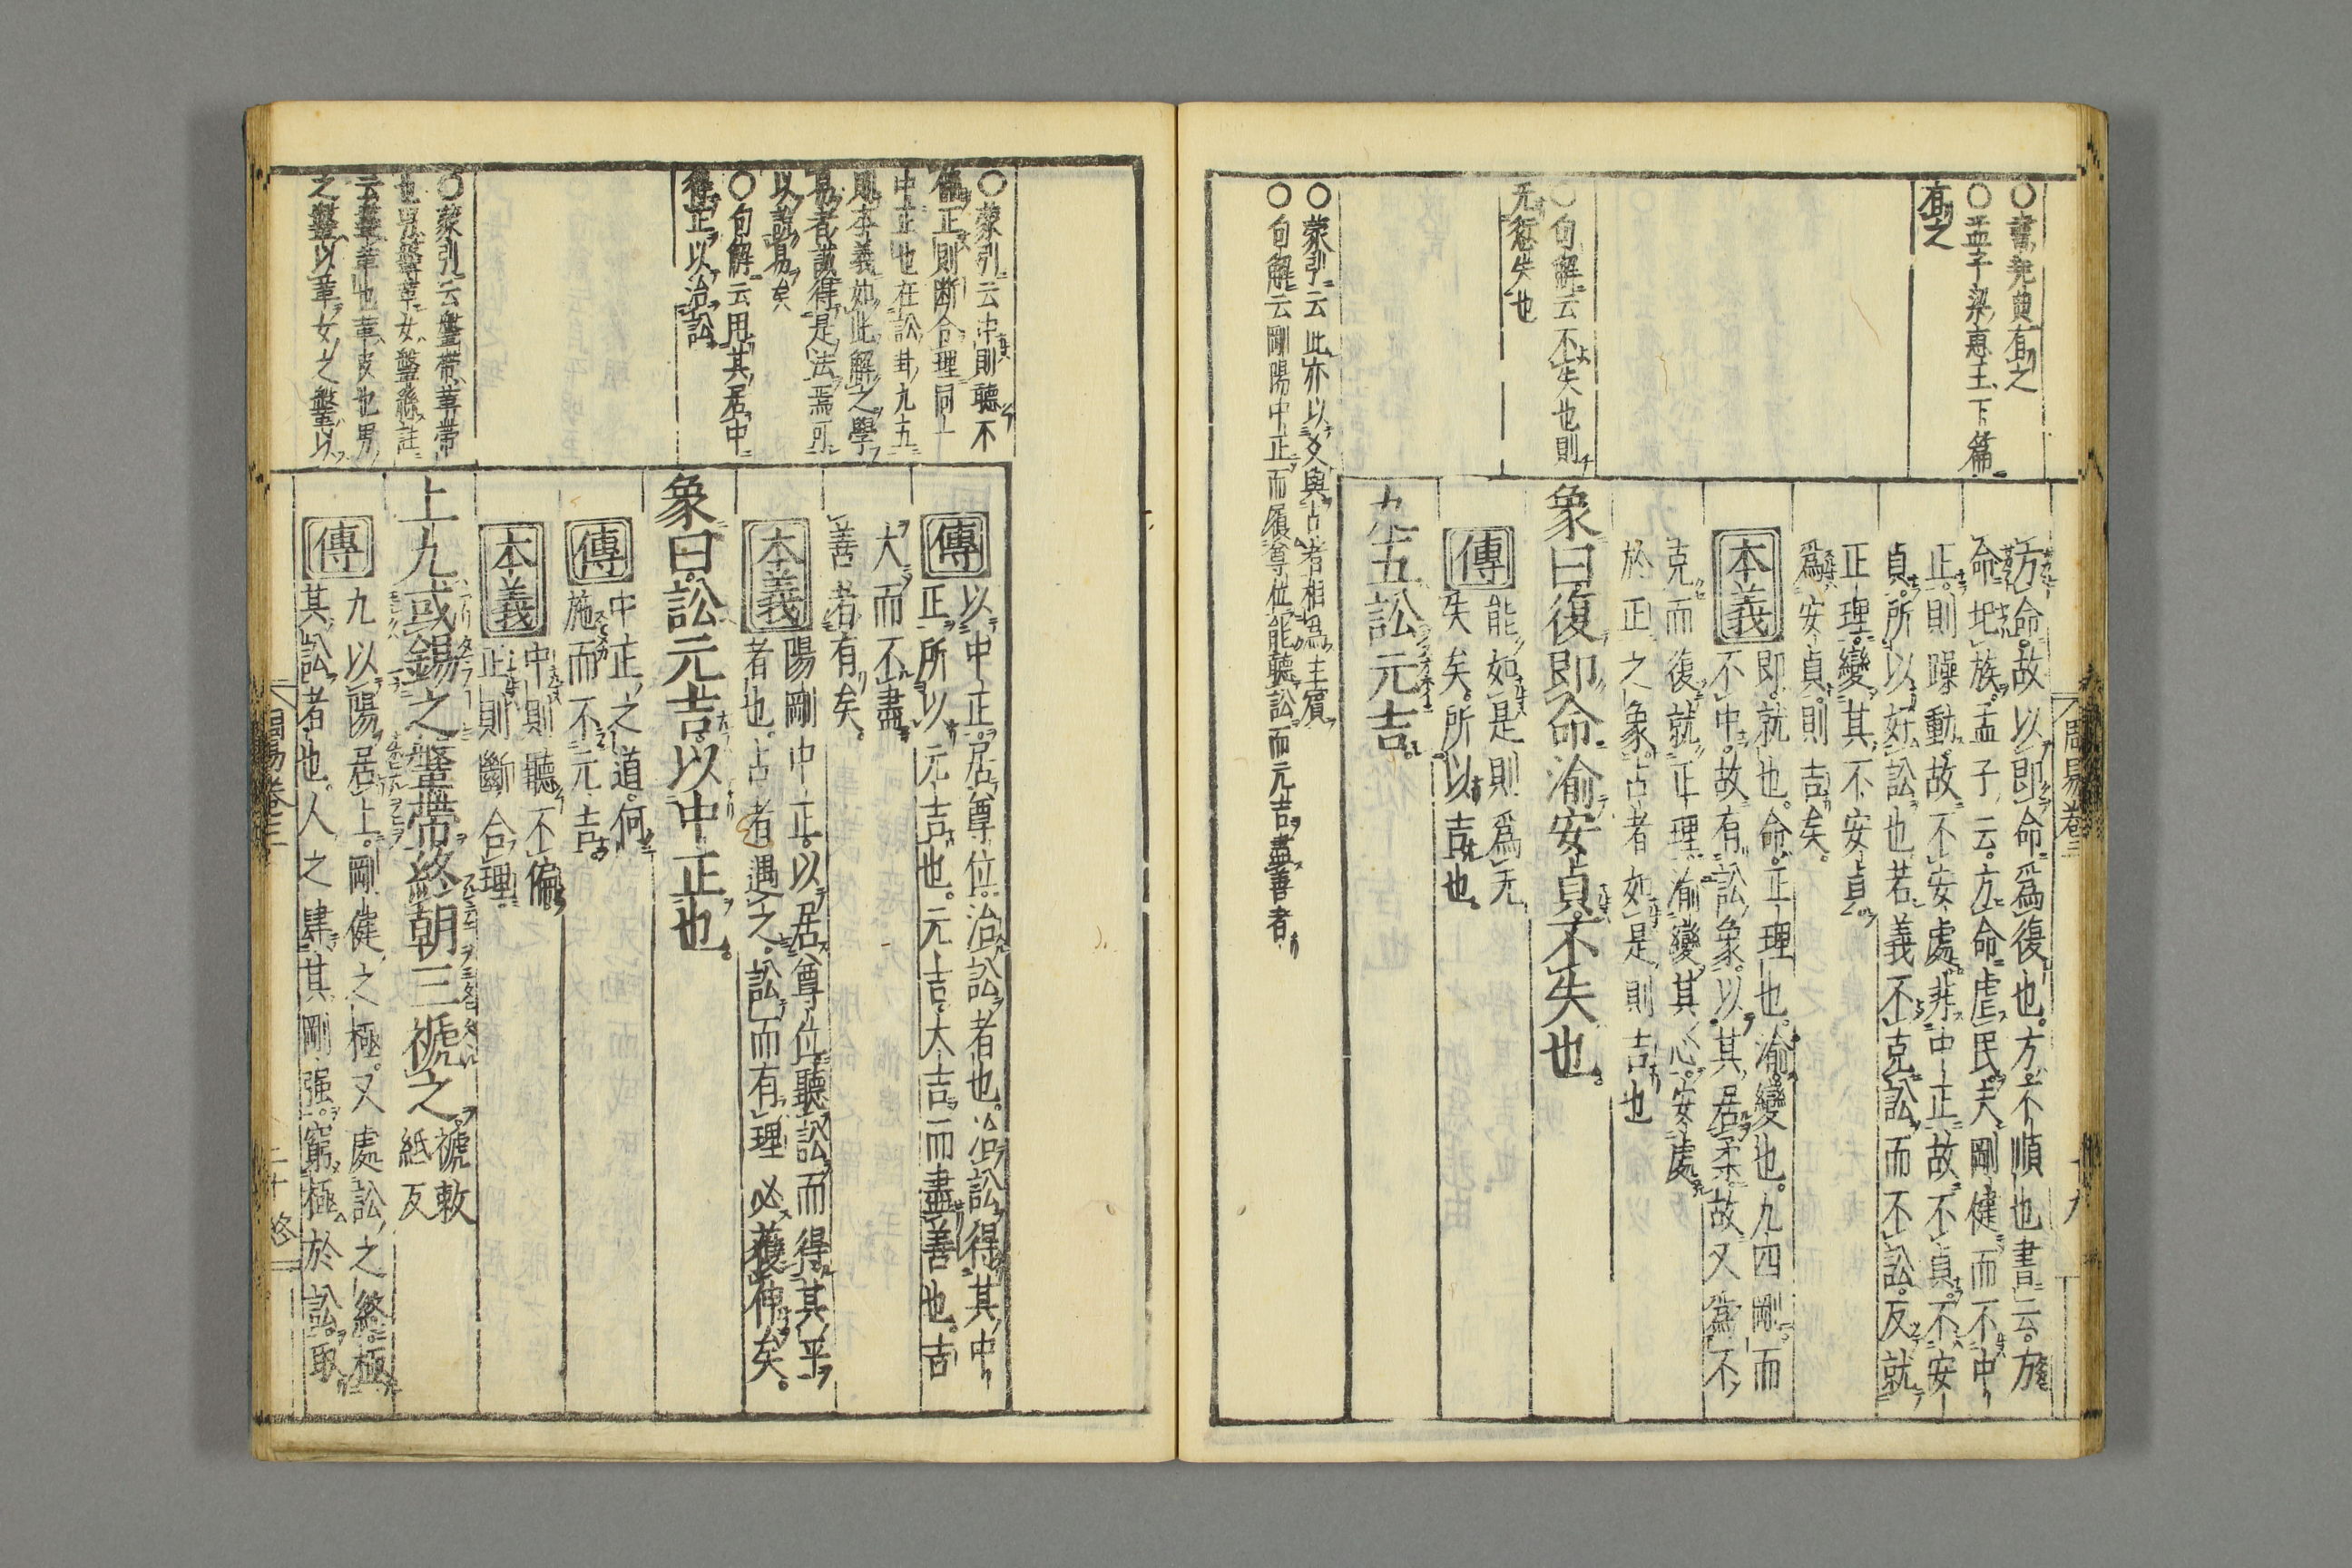 周易卷三
十九
○書堯典有之
○孟子梁惠王下篇
有之
○句解云不失也則
无愆失也
方命。故以即命爲復也。方。不順也書云。方
命圯族。孟子云。方命虐民。夫剛健而不中
正。則躁動。故不安處。非中正。故不貞。不安
貞。所以好訟也若義不克訟而不訟。反就
正理。變其不安貞
爲安貞。則吉矣。
本義
即。就也。命。正理也。渝。變也。九四剛而
不中。故有訟象。以其居柔。故又爲不
克而復就正理。渝變其心。安處
於正之象。占者如是則吉也
象曰復即命渝安貞不失也。
傳
能如是則爲无
失矣。所以吉也。
九五訟元吉。
○蒙引云此亦以爻與占者相爲主賓
○句解云剛陽中正而履尊位能聽訟而元吉盡善者
○蒙引云中則聽不
偏正則断合理同上
中正也在訟卦九五
則本義如此解之學
易者識得是法焉可
以說易矣
○句解云用其居中
得正以治訟
○蒙引云鞶帶革帶
也男鞶革女鞶絲註
云鞶革也革皮也男
之鞶以革女之鞶以
傳
以中正。居尊位。治訟者也。治訟得其中
正。所以元吉也。元吉。大吉而盡善也。吉
大而不盡
善者有矣。
本義
陽剛中正。以居尊位聽訟而得其平
者也。占者遇之。訟而有理必獲伸矣。
象曰。訟元吉。以中正也。
傳
中正之道。何
施而不元吉。
本義
中則聽不偏。
正則斷合理
上九或錫之鞶帶終朝三褫之褫敕
紙反
傳
九以陽居上。剛健之極。又處訟之終極
其訟者也。人之肆其剛强。窮極於訟。取
周易卷三
二十